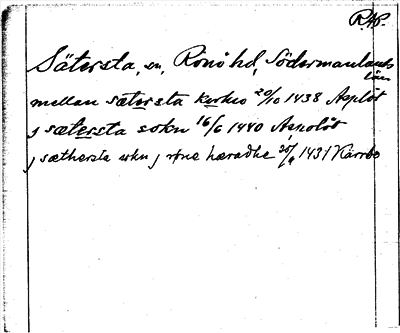 RAP.
Sätersta, sn, Rönö hd, Södermanlands
län
mellan sætersta kirkio 20/10 1438 Asplöt
j sætersta sokn 16/6 1440 Aspolöt
j sæthersta sokn j røne hæradhe 1431 Kärrbo